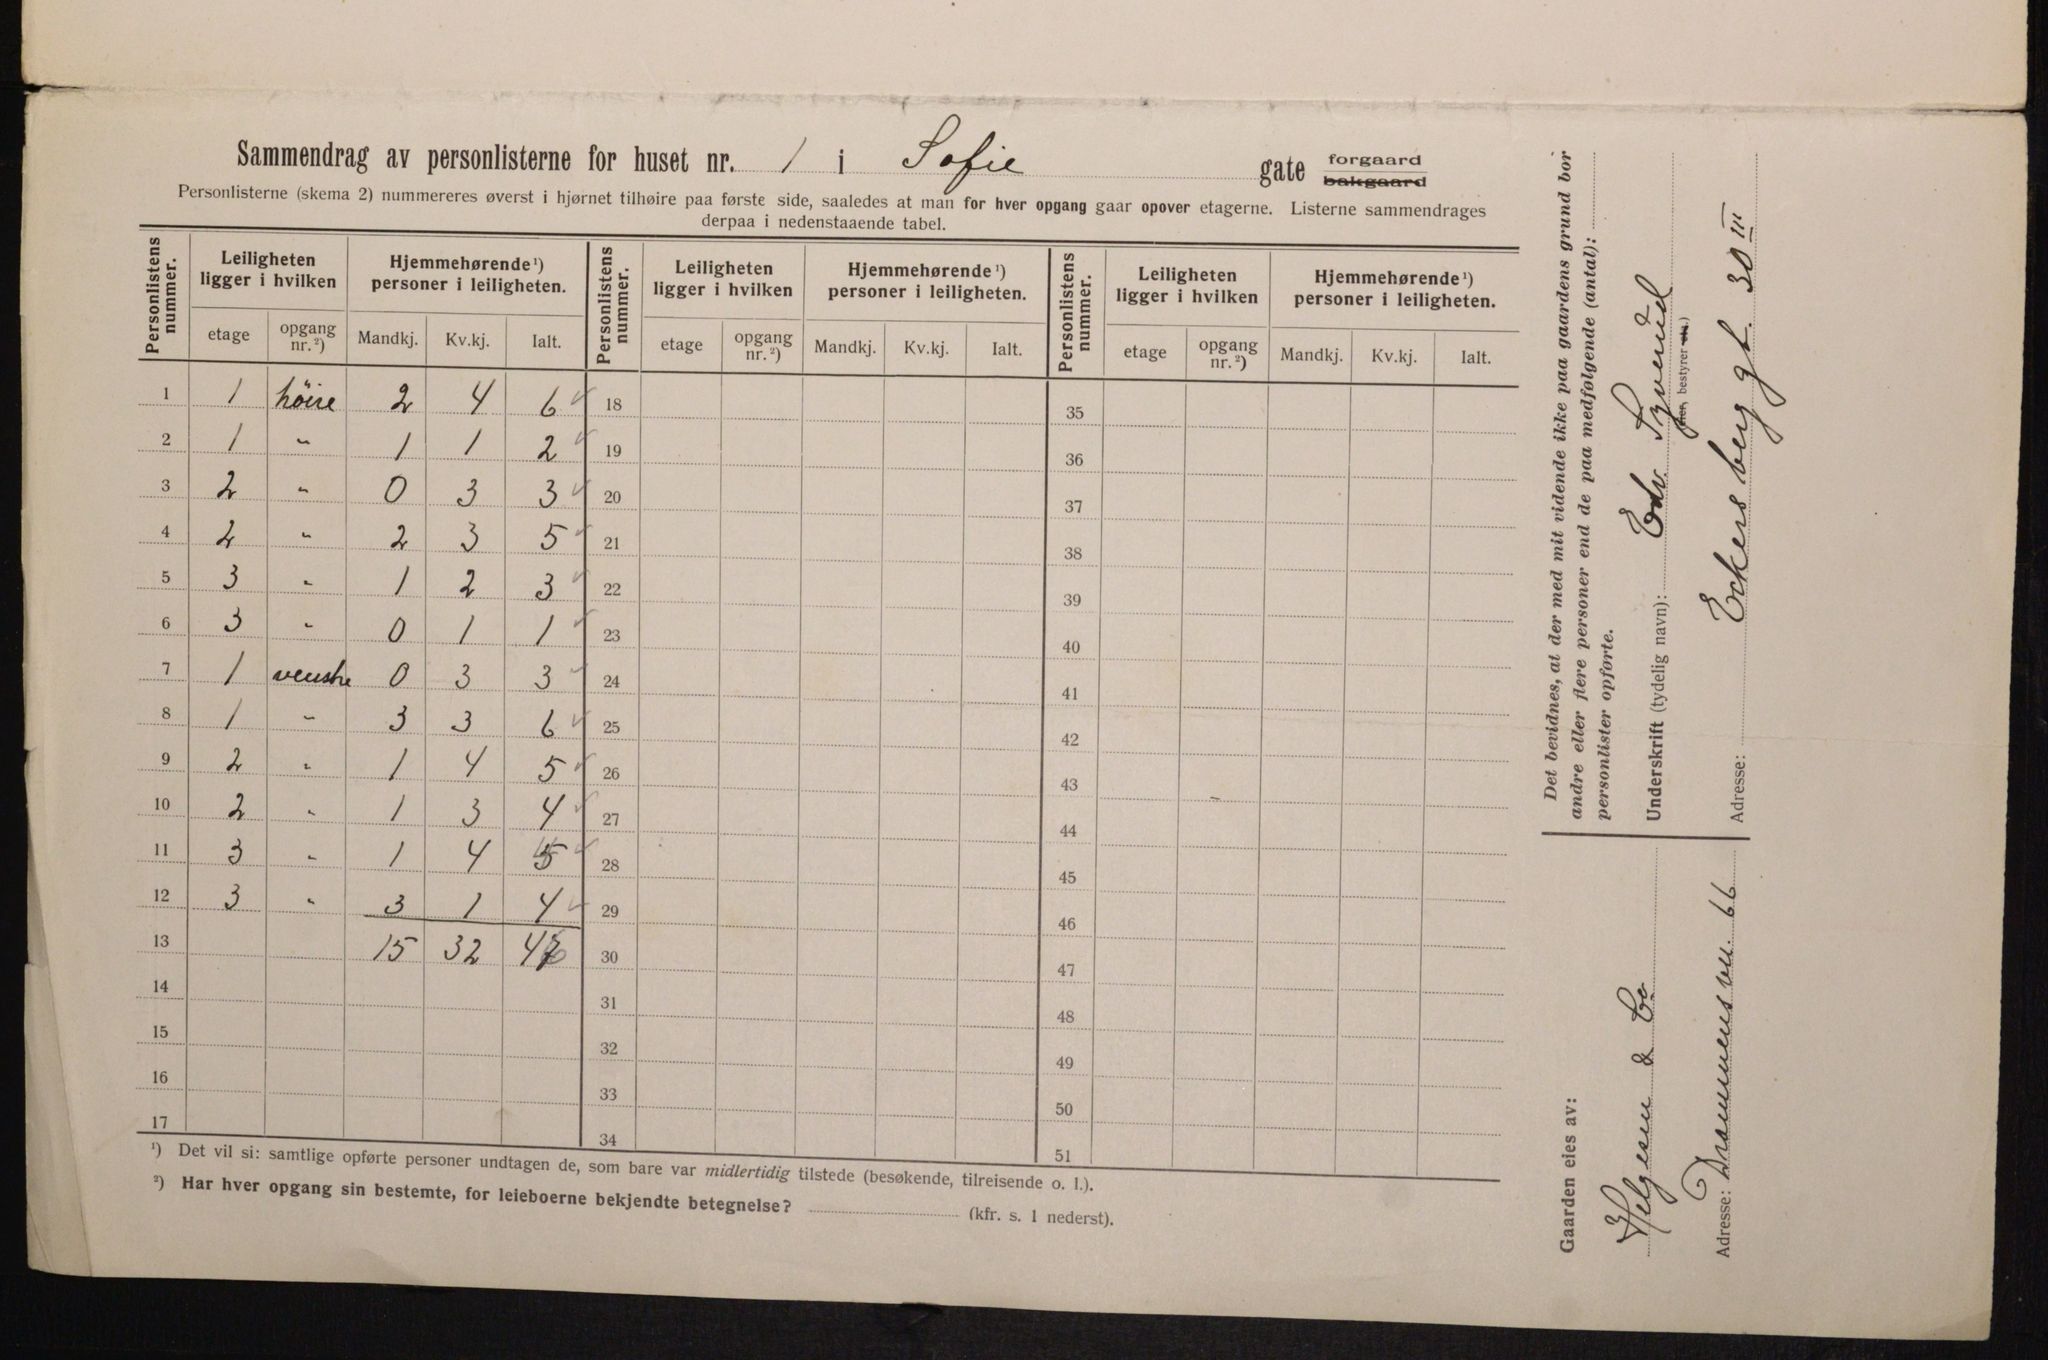 Sammendrag av personlisterne for huset nr. 1 i Sofie gate forgaard bakgaard
Personlisterne (skema 2) nummereres øverst i hjørnet tilhøire paa første side, saaledes at man for hver opgang gaar opover etagerne. Listerne sammendrages
derpaa i nedenstaaende tabel.
Personlistens nummer. Leiligheten ligger i hvilken Hjemmehørende¹) personer i leiligheten. Personlistens nummer. Leiligheten ligger i hvilken Hjemmehørende¹) personer i leiligheten. Personlistens nummer. Leiligheten ligger i hvilken Hjemmehørende¹) personer i leiligheten.
etage opgang nr.²) Mandkj. Kv.kj. Ialt. etage opgang nr.²) Mandkj. Kv.kj. Ialt. etage opgang nr.²) Mandkj. Kv.kj. Ialt.
1 1 höire 2 4 6 18 35
2 1 " 1 1 2 19 36
3 2 " 0 3 3 20 37
4 2 " 2 3 5 21 38
5 3 " 1 2 3 22 39
6 3 " 0 1 1 23 40
7 1 venstre 0 3 3 24 41
8 1 " 3 3 6 25 42
9 2 " 1 4 5 26 43
10 2 " 1 3 4 27 44
11 3 " 1 4 5 28 45
12 3 " 3 1 4 29 46
13 15 32 47 30 47
14 31 48
15 32 49
16 33 50
17 34 51
¹) Det vil si: samtlige opførte personer undtagen de, som bare var midlertidig tilstede (besøkende, tilreisende o. l.).
²) Har hver opgang sin bestemte, for leieboerne bekjendte betegnelse? (kfr. s. 1 nederst).
Det bevidnes, at der med mit vidende ikke paa gaardens grund bor
andre eller flere personer end de paa medfølgende (antal):
personlister opførte.
Underskrift (tydelig navn): Edv.
bestyrer
Adresse: Eckersberg gt. 30 III
Gaarden eies av:
Helgesen & Co
Adresse: Drammensvn. 66